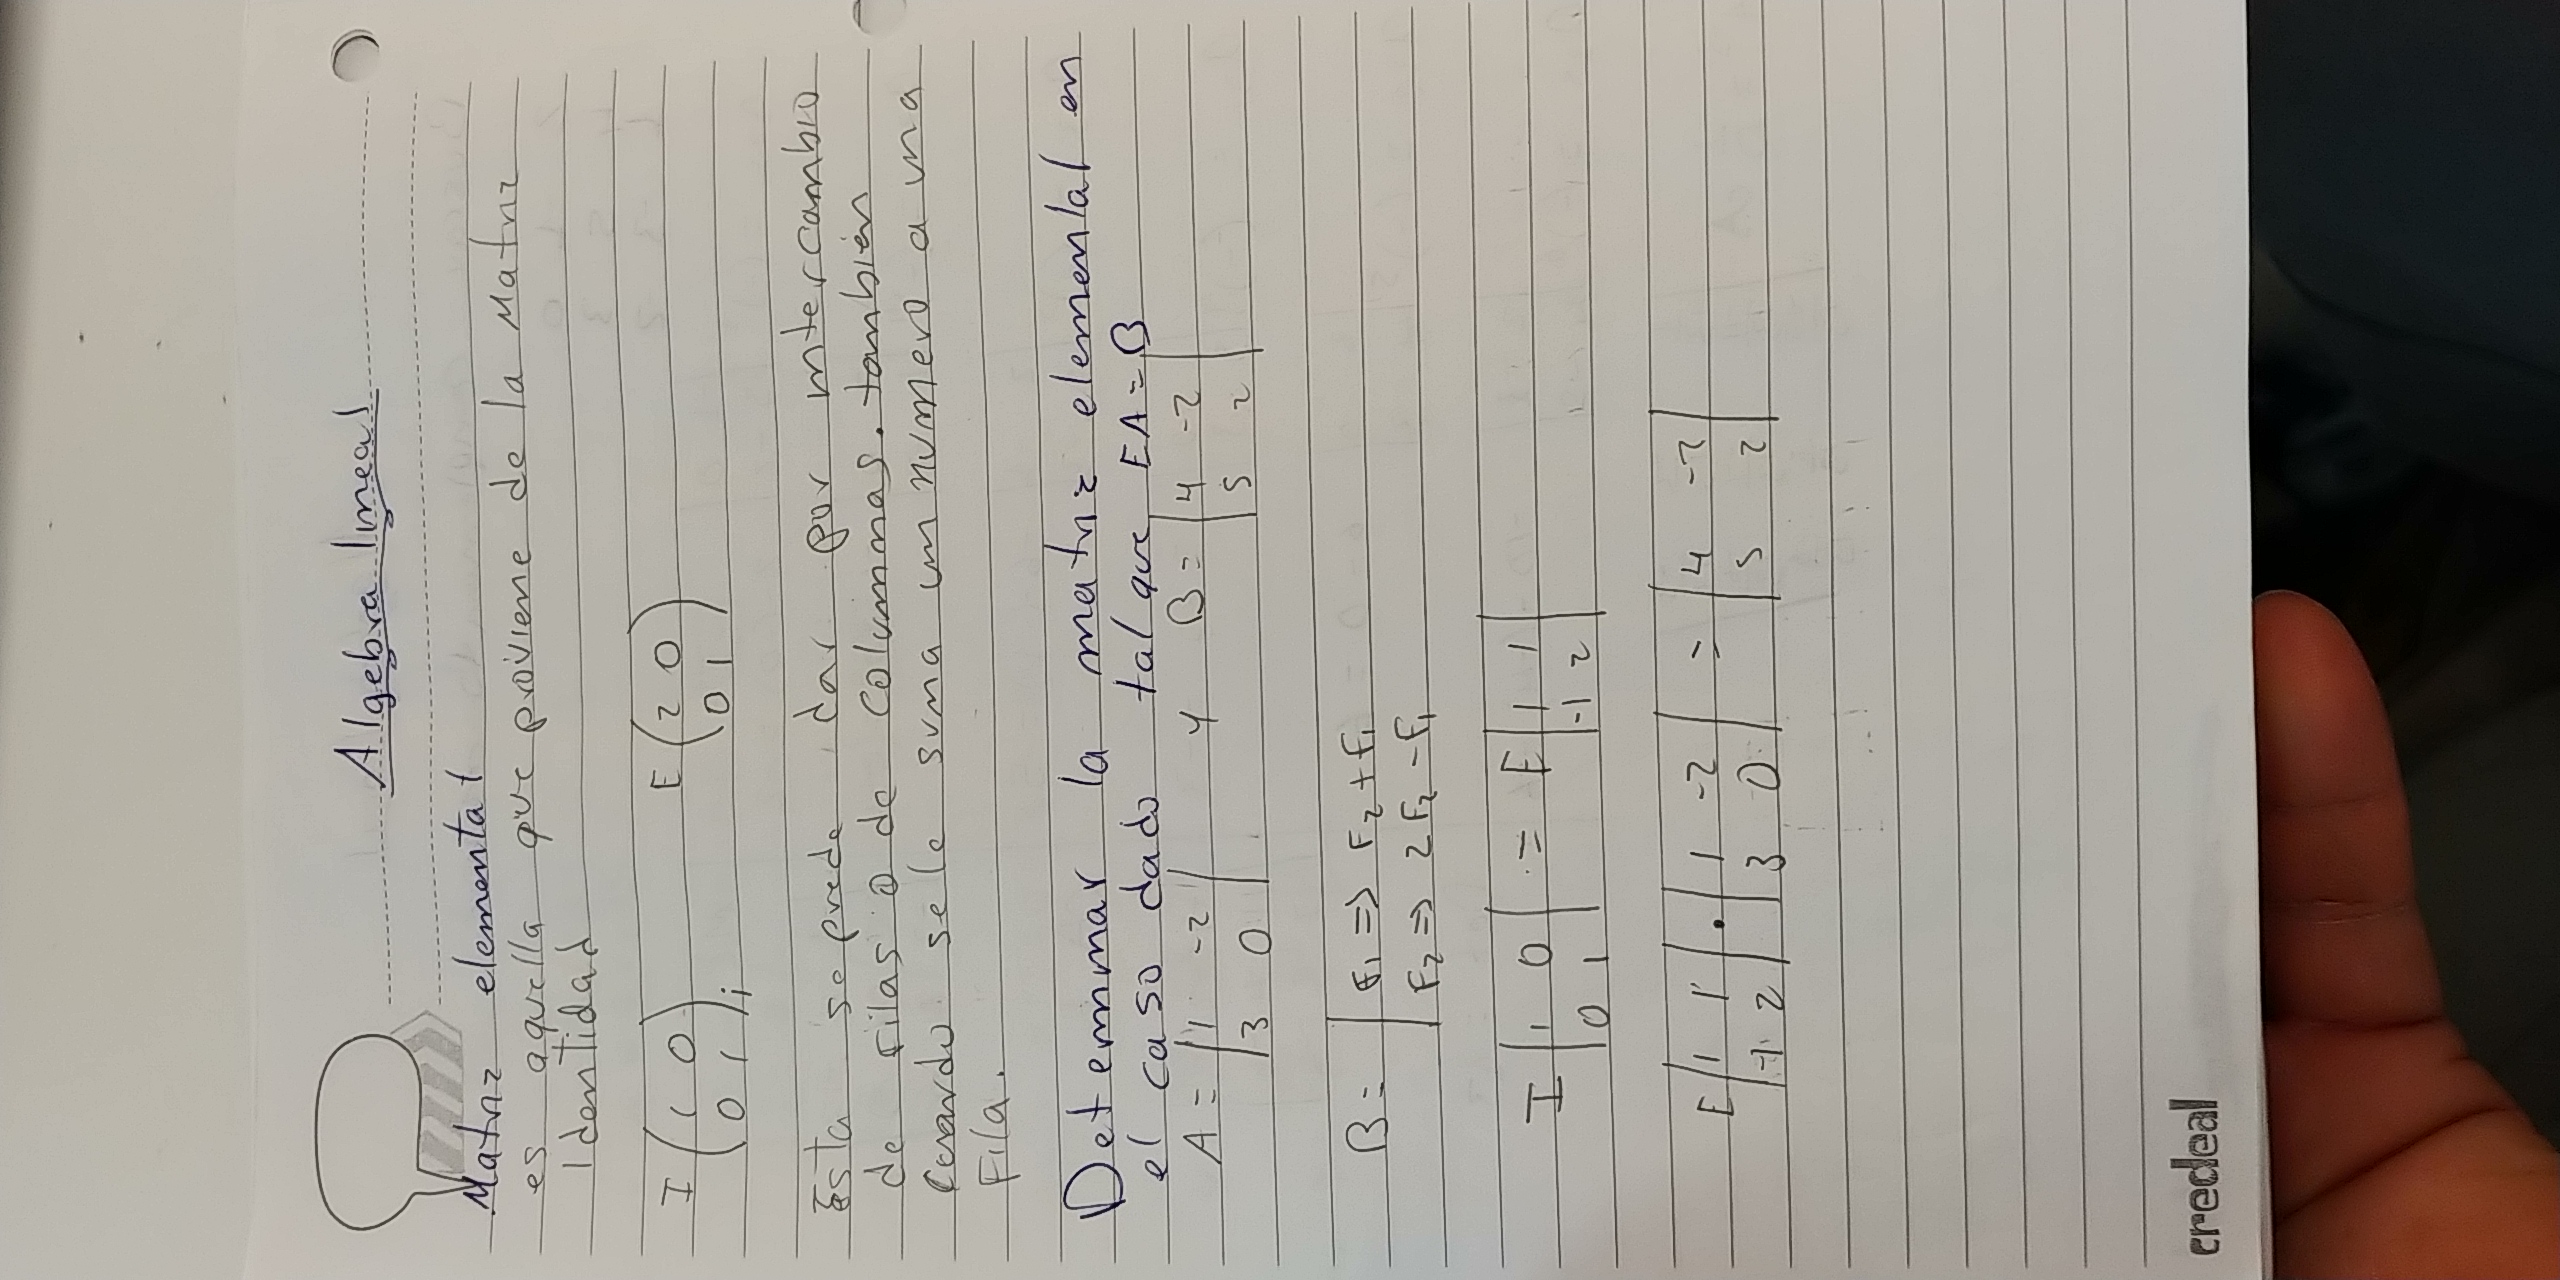 Algebra lineal
Matriz elemental
es aquella que proviene de la Matriz
Identidad
I (1 0 E (2 0
0 1); 0 1)
Esta se puede dar por intercambio
de filas o de columnas. también
Cuando se le suma un numero a una
Fila.
Determinar la matriz elemental en
el caso dado tal que EA = B
A = |1 -2| y B = |4 -2|
|3 0| |5 2|
B = | F₁ => F₂ + F₁
| F₂ => 2F₂ - F₁
I |1 0| = E |1 1|
|0 1| |-1 2|
E |1 1| . |1 -2| = |4 -2|
|-1 2| |3 0| |5 2|
credeal